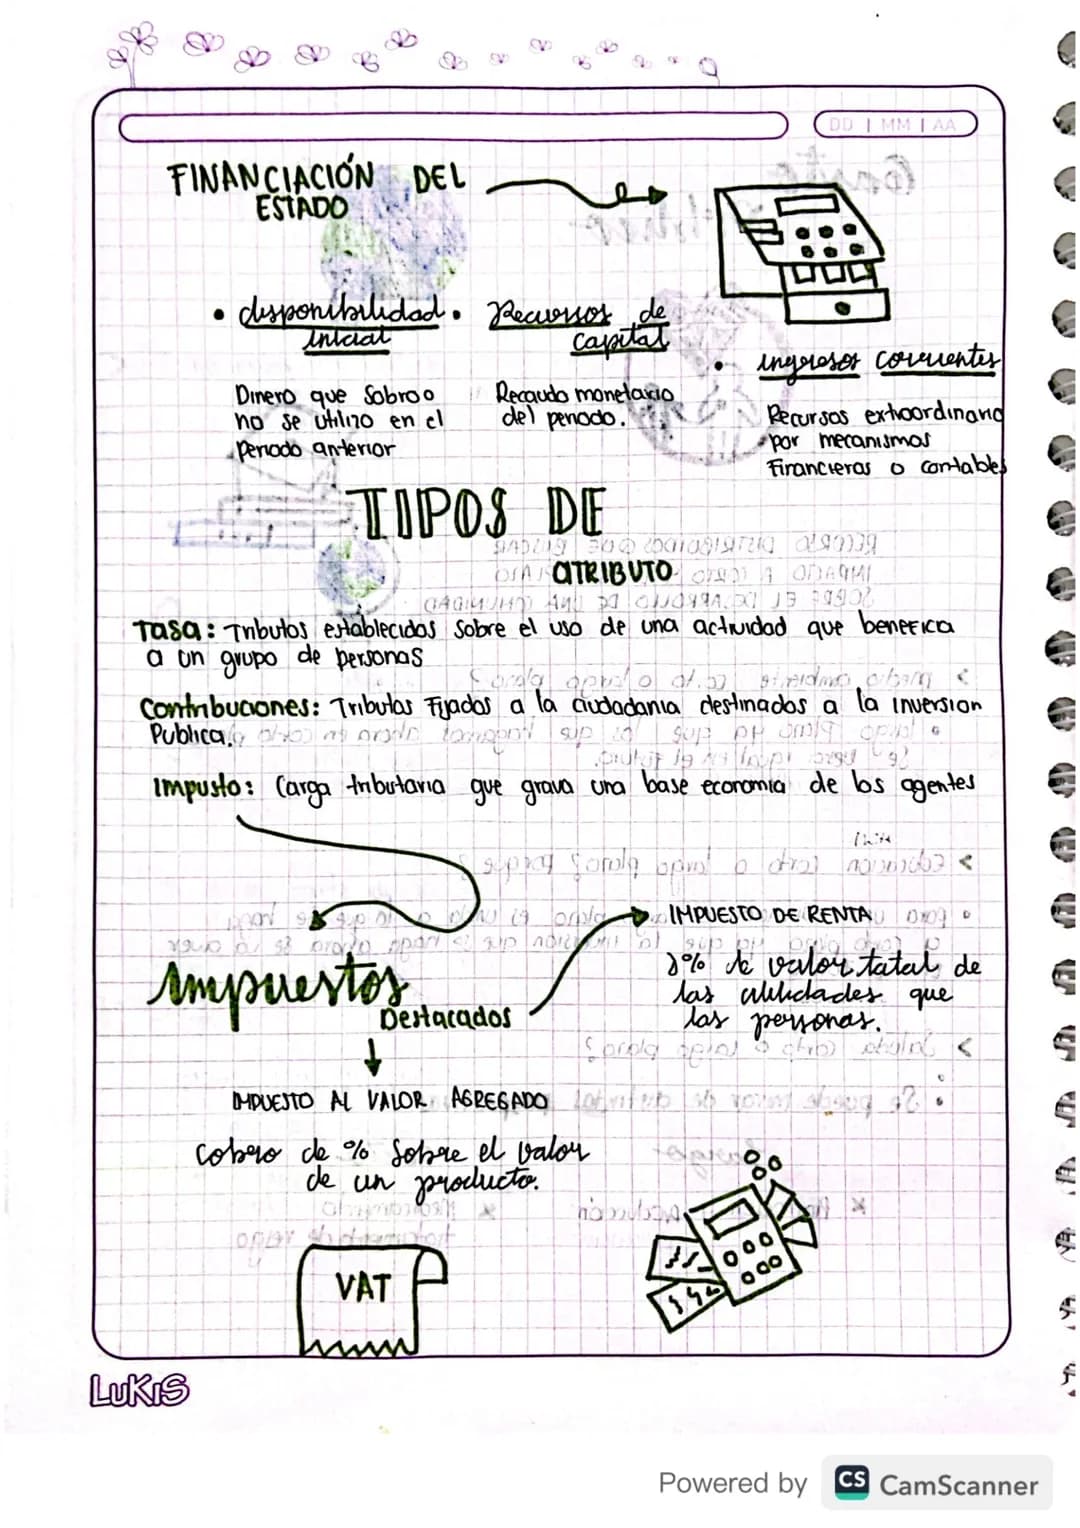 DD | MM | AA
FINANCIACIÓN DEL
ESTADO
• disponibilidad
inicial
Dinero que Sobro o
no se utilizo en el
periodo anterior
• Recursos de
Capital
Recaudo monetario
del periodo.
• ingresos corrientes
Recursos extraordinario
por mecanismos
Financieros o contables
TIPOS DE
ATRIBUTO
Tasa: Tributos establecidos sobre el uso de una actividad que benefica
a un grupo de personas
Contribuciones: Tributos Fijados a la ciudadania destinados a la inversion
Publica.
Impusto: Carga tributaria que grava una base economia de los agentes
Impuestos
Destacados
IMPUESTO DE RENTA
% de valor tatal de
las utilidades que
las personas.
IMPUESTO AL VALOR AGREGADO
Cobero de % sobre el valor
de un producto.
VAT
LUKIS
Powered by CS CamScanner